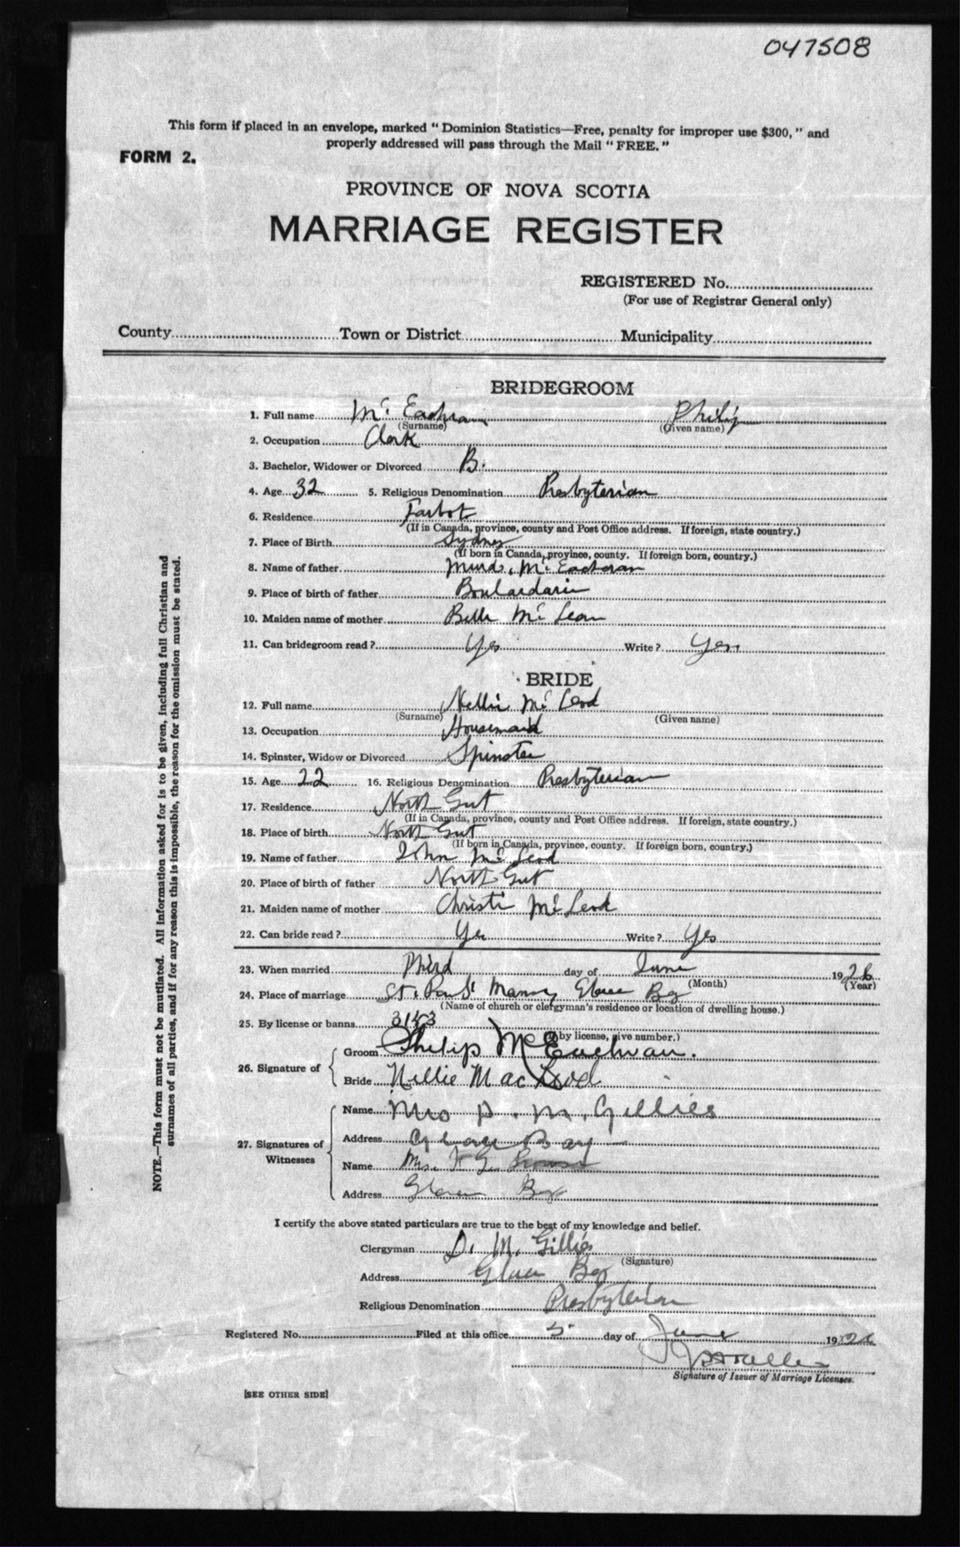 047508
This form if placed in an envelope, marked " Dominion Statistics—Free, penalty for improper use $300, " and
properly addressed will pass through the Mail " FREE. "
FORM 2.
PROVINCE OF NOVA SCOTIA
MARRIAGE REGISTER
REGISTERED No.
(For use of Registrar General only)
County Town or District Municipality
BRIDEGROOM
1. Full name Mc Eachran Philip
(Surname) (Given name)
2. Occupation Clerk
3. Bachelor, Widower or Divorced B.
4. Age 32 5. Religious Denomination Presbyterian
6. Residence Tarbot
(If in Canada, province, county and Post Office address. If foreign, state country.)
7. Place of Birth Sydney
(If born in Canada, province, county. If foreign born, country.)
8. Name of father Murd. Mc Eachran
9. Place of birth of father Boulardarie
10. Maiden name of mother Belle Mc Lean
11. Can bridegroom read ? Yes Write ? Yes
BRIDE
12. Full name Nellie Mc Leod
(Surname) (Given name)
13. Occupation Housemaid
14. Spinster, Widow or Divorced Spinster
15. Age 22 16. Religious Denomination Presbyterian
17. Residence North Gut
(If in Canada, province, county and Post Office address. If foreign, state country.)
18. Place of birth North Gut
(If born in Canada, province, county. If foreign born, country.)
19. Name of father John Mc Leod
20. Place of birth of father North Gut
21. Maiden name of mother Christi Mc Leod
22. Can bride read ? Yes Write ? Yes
23. When married Third day of June 1926
(Month) (Year)
24. Place of marriage St. Paul Manse, Glace Bay
(Name of church or clergyman's residence or location of dwelling house.)
25. By license or banns 3143
(If by license, give number.)
26. Signature of
Groom Philip McEachran.
Bride Nellie MacLeod
27. Signatures of Witnesses
Name Mrs D. M. Gillies
Address Glace Bay
Name Mrs. F G.
Address Glace Bay
I certify the above stated particulars are true to the best of my knowledge and belief.
Clergyman D. M. Gillies
(Signature)
Address Glace Bay
Religious Denomination Presbyterian
Registered No. Filed at this office 5 day of June 1926
Signature of Issuer of Marriage Licenses.
[SEE OTHER SIDE]
NOTE.—This form must not be mutilated. All information asked for is to be given, including full Christian and
surnames of all parties, and if for any reason this is impossible, the reason for the omission must be stated.